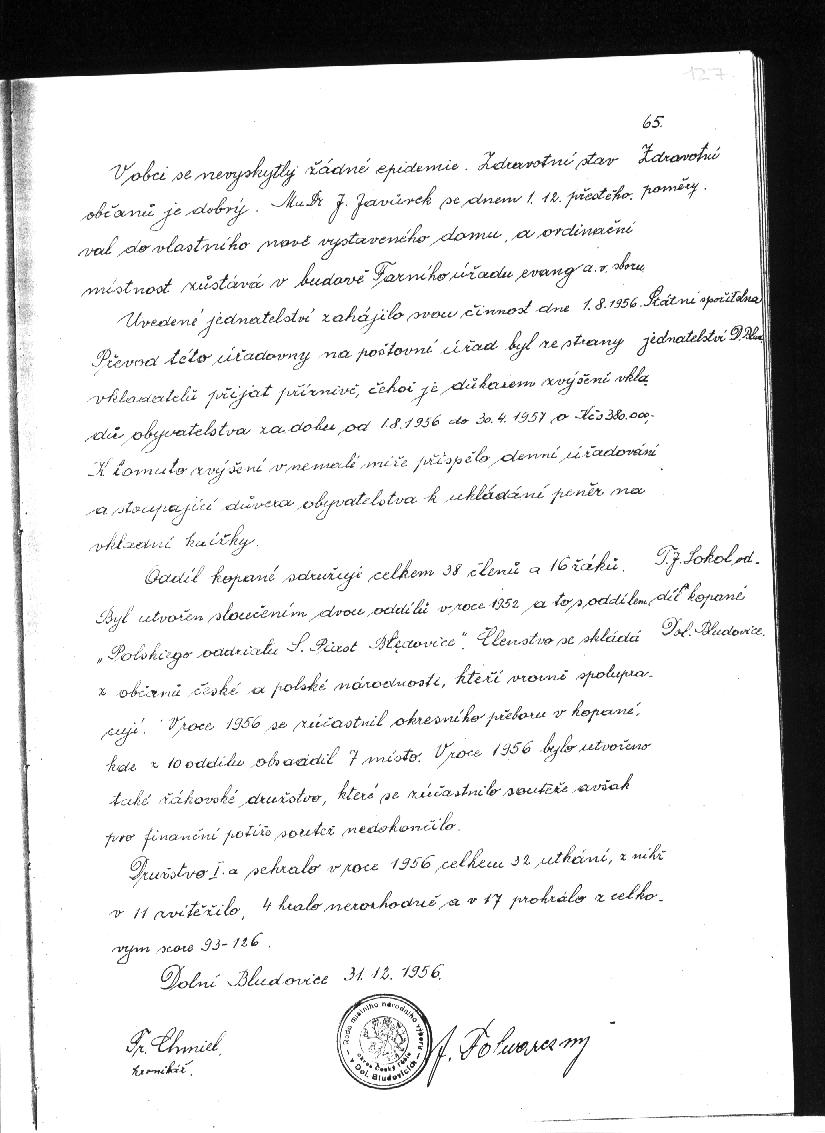 127.
65.
V obci se nevyskytly žádné epidemie. Zdravotní stav
Zdravotní
občanů je dobrý. MuDr J. Javůrek se dnem 1. 12. přestěho-
poměry.
val do vlastního nově vystaveného domu, a ordinační
místnost zůstává v budově Farního úřadu evang. a. v. sboru
Uvedené jednatelství zahájilo svou činnost dne 1.8.1956.
Státní spořitelna
Převod této úřadovny na poštovní úřad byl ze strany
jednatelství D. Blud
vkladatelů přijat příznivě, čehož je důkazem zvýšení vkla
dů obyvatelstva za dobu od 1.8.1956 do 30.4.1957 o Kčs 380.000,-
K tomuto zvýšení v nemalé míře přispělo denní úřadování
a stoupající důvěra obyvatelstva k ukládání peněz na
vkladní knížky.
Oddíl kopané sdružuje celkem 38 členů a 16 žáků.
T. J. Sokol, od-
Byl utvořen sloučením dvou oddílů v roce 1952 a to s oddílem
díl kopané
„Polskiego oddzialu S. Piast Błędowice". Členstvo se skládá
Dol. Bludovice.
z občanů české a polské národnosti, kteří vzorně spolupra-
cují. V roce 1956 se zúčastnil okresního přeboru v kopané,
kde z 10 oddílu obsadil 7 místo. V roce 1956 bylo utvořeno
také žákovské družstvo, které se zúčastnilo soutěže avšak
pro finanční potíže soutěž nedokončilo.
Družstvo I. a sehrálo v roce 1956 celkem 32 utkání, z nihž
v 11 zvítěžilo, 4 hrálo nerozhodně a v 17 prohrálo z celko-
vým score 93-126.
Dolní Bludovice 31. 12. 1956.
Fr. Chmiel,
kronikář.
Rada místního národního výboru
v Dol. Bludovicích
okres Český Těšín
J. Folwarczný